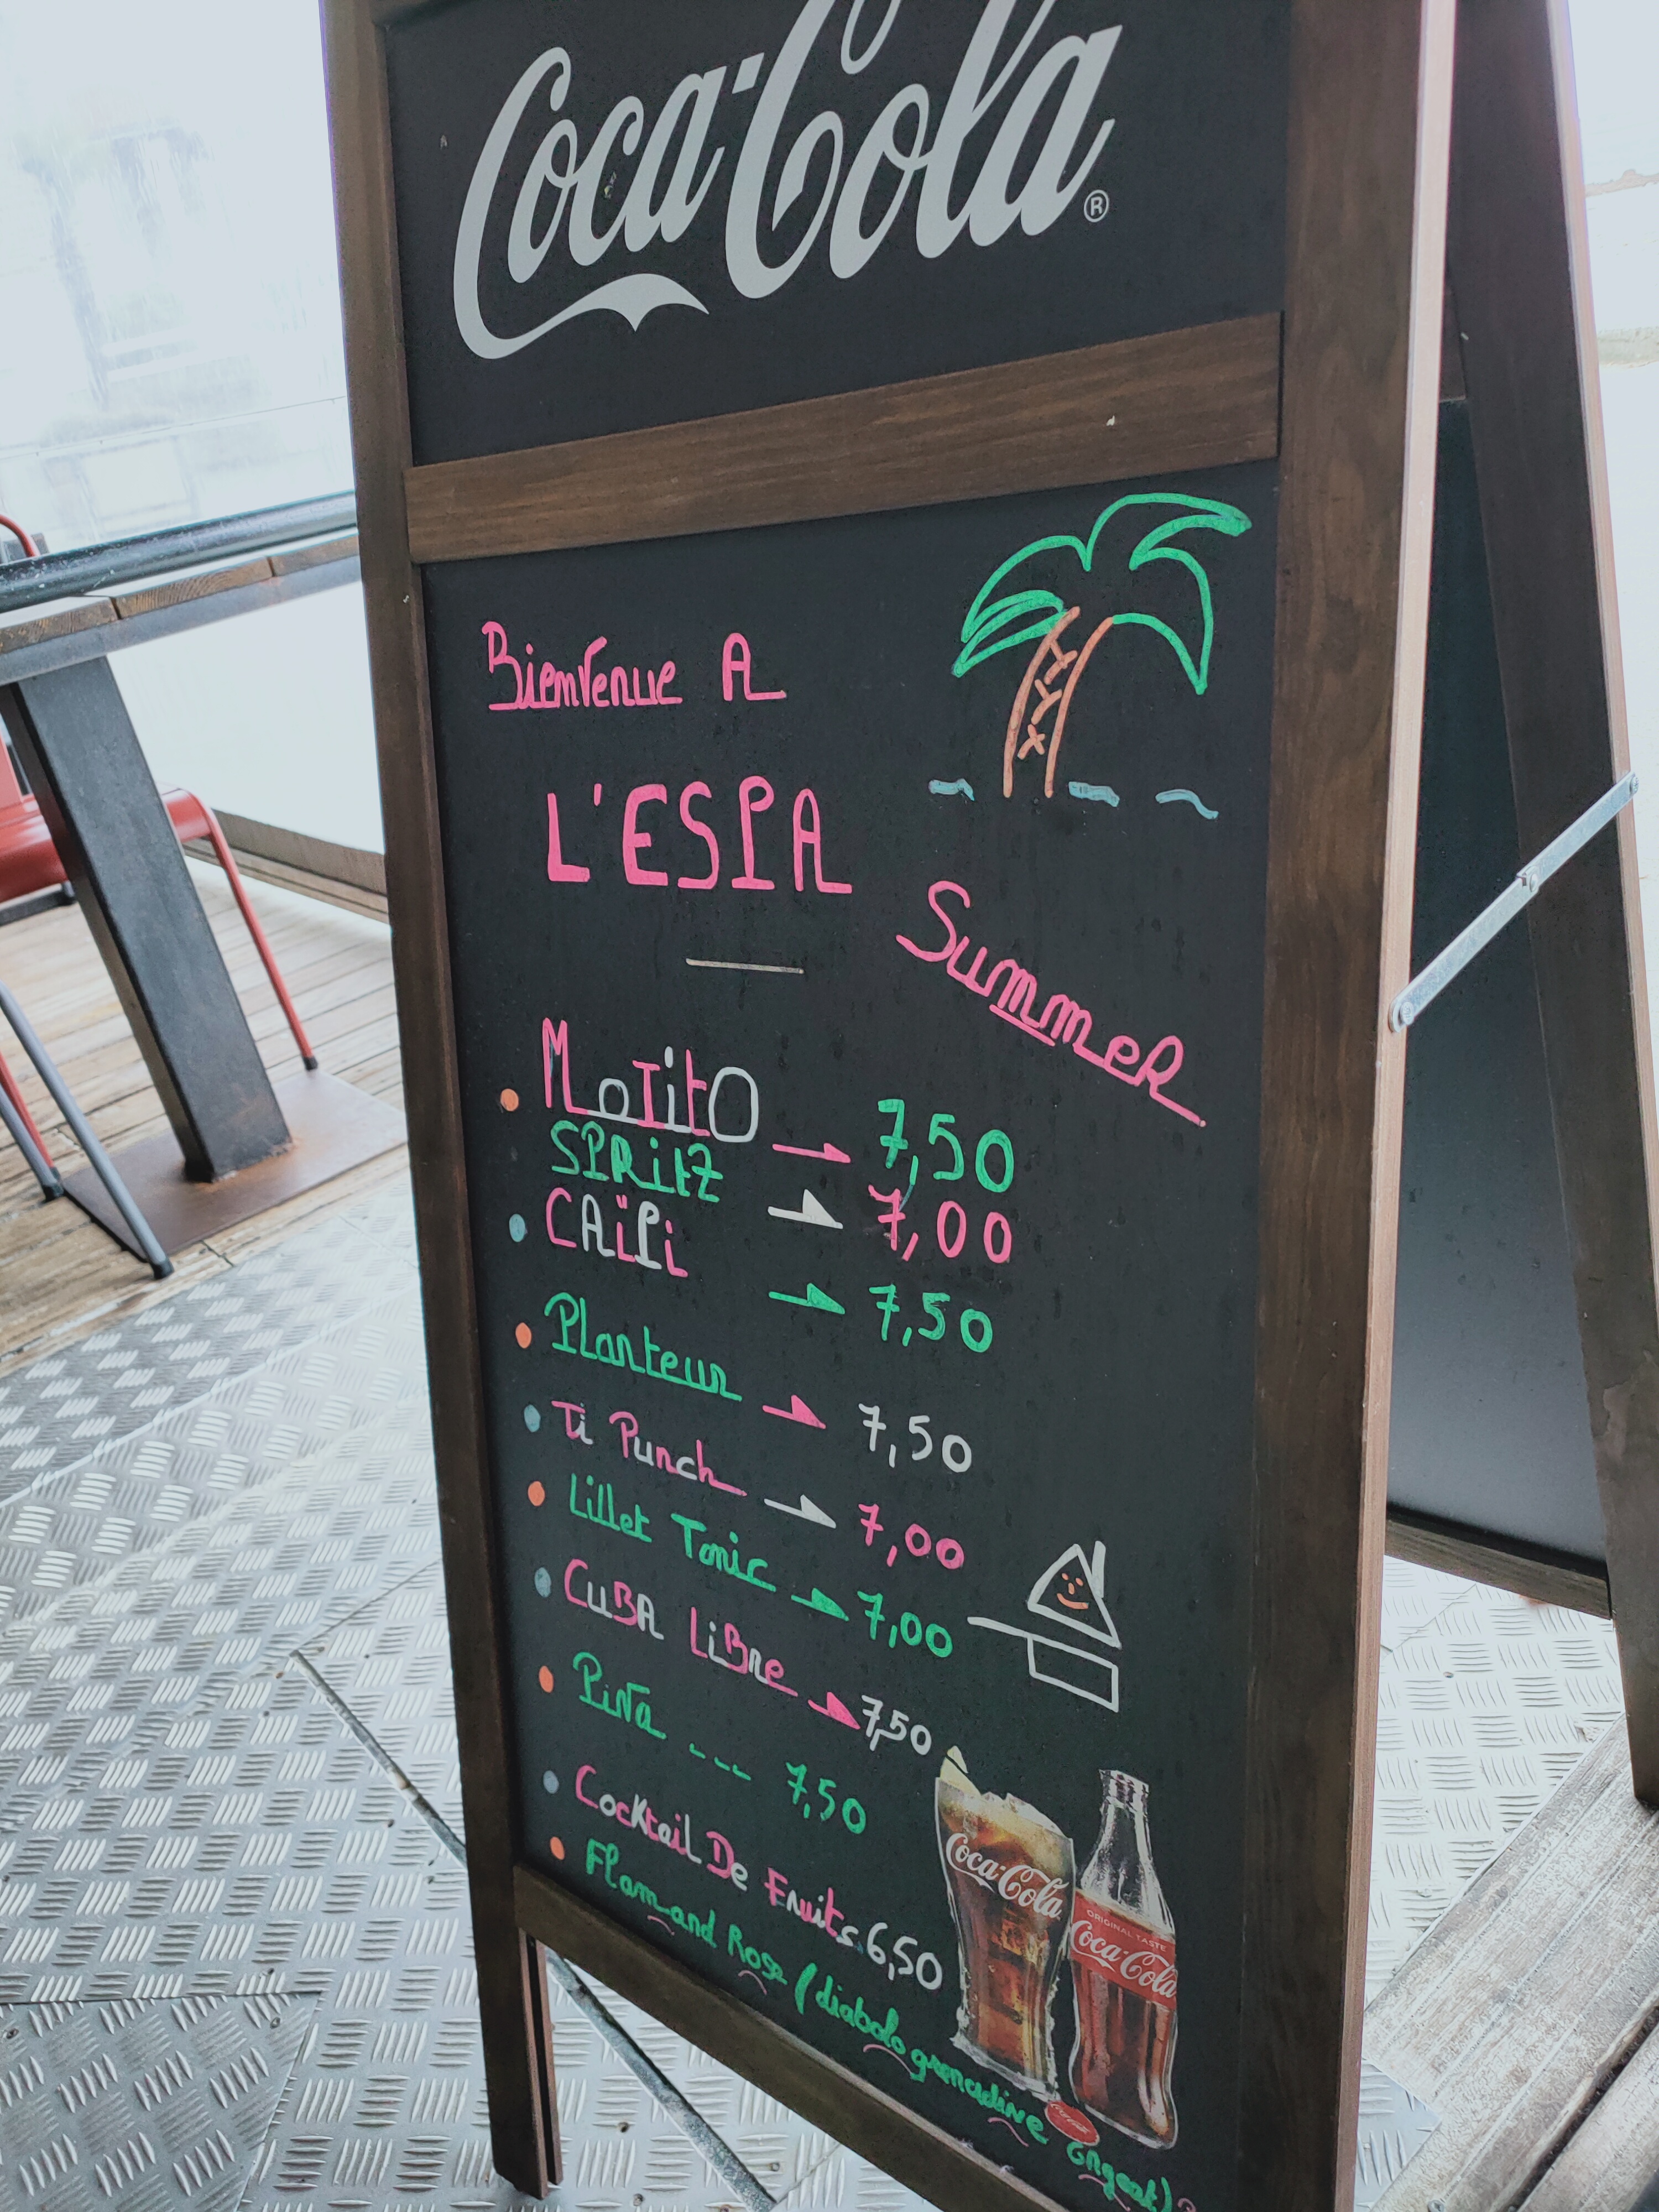 Coca-Cola ®
Bienvenue A
L'ESPA
Summer
MoJitO → 7,50
SPRitZ → 7,00
CAïPi → 7,50
Planteur → 7,50
Ti Punch → 7,00
Lillet Tonic → 7,00
CuBA LiBre → 7,50
Piña --- 7,50
Cocktail De Fruits 6,50
Flam and Rose (diabolo grenadine
Coca-Cola
ORIGINAL TASTE
Coca-Cola